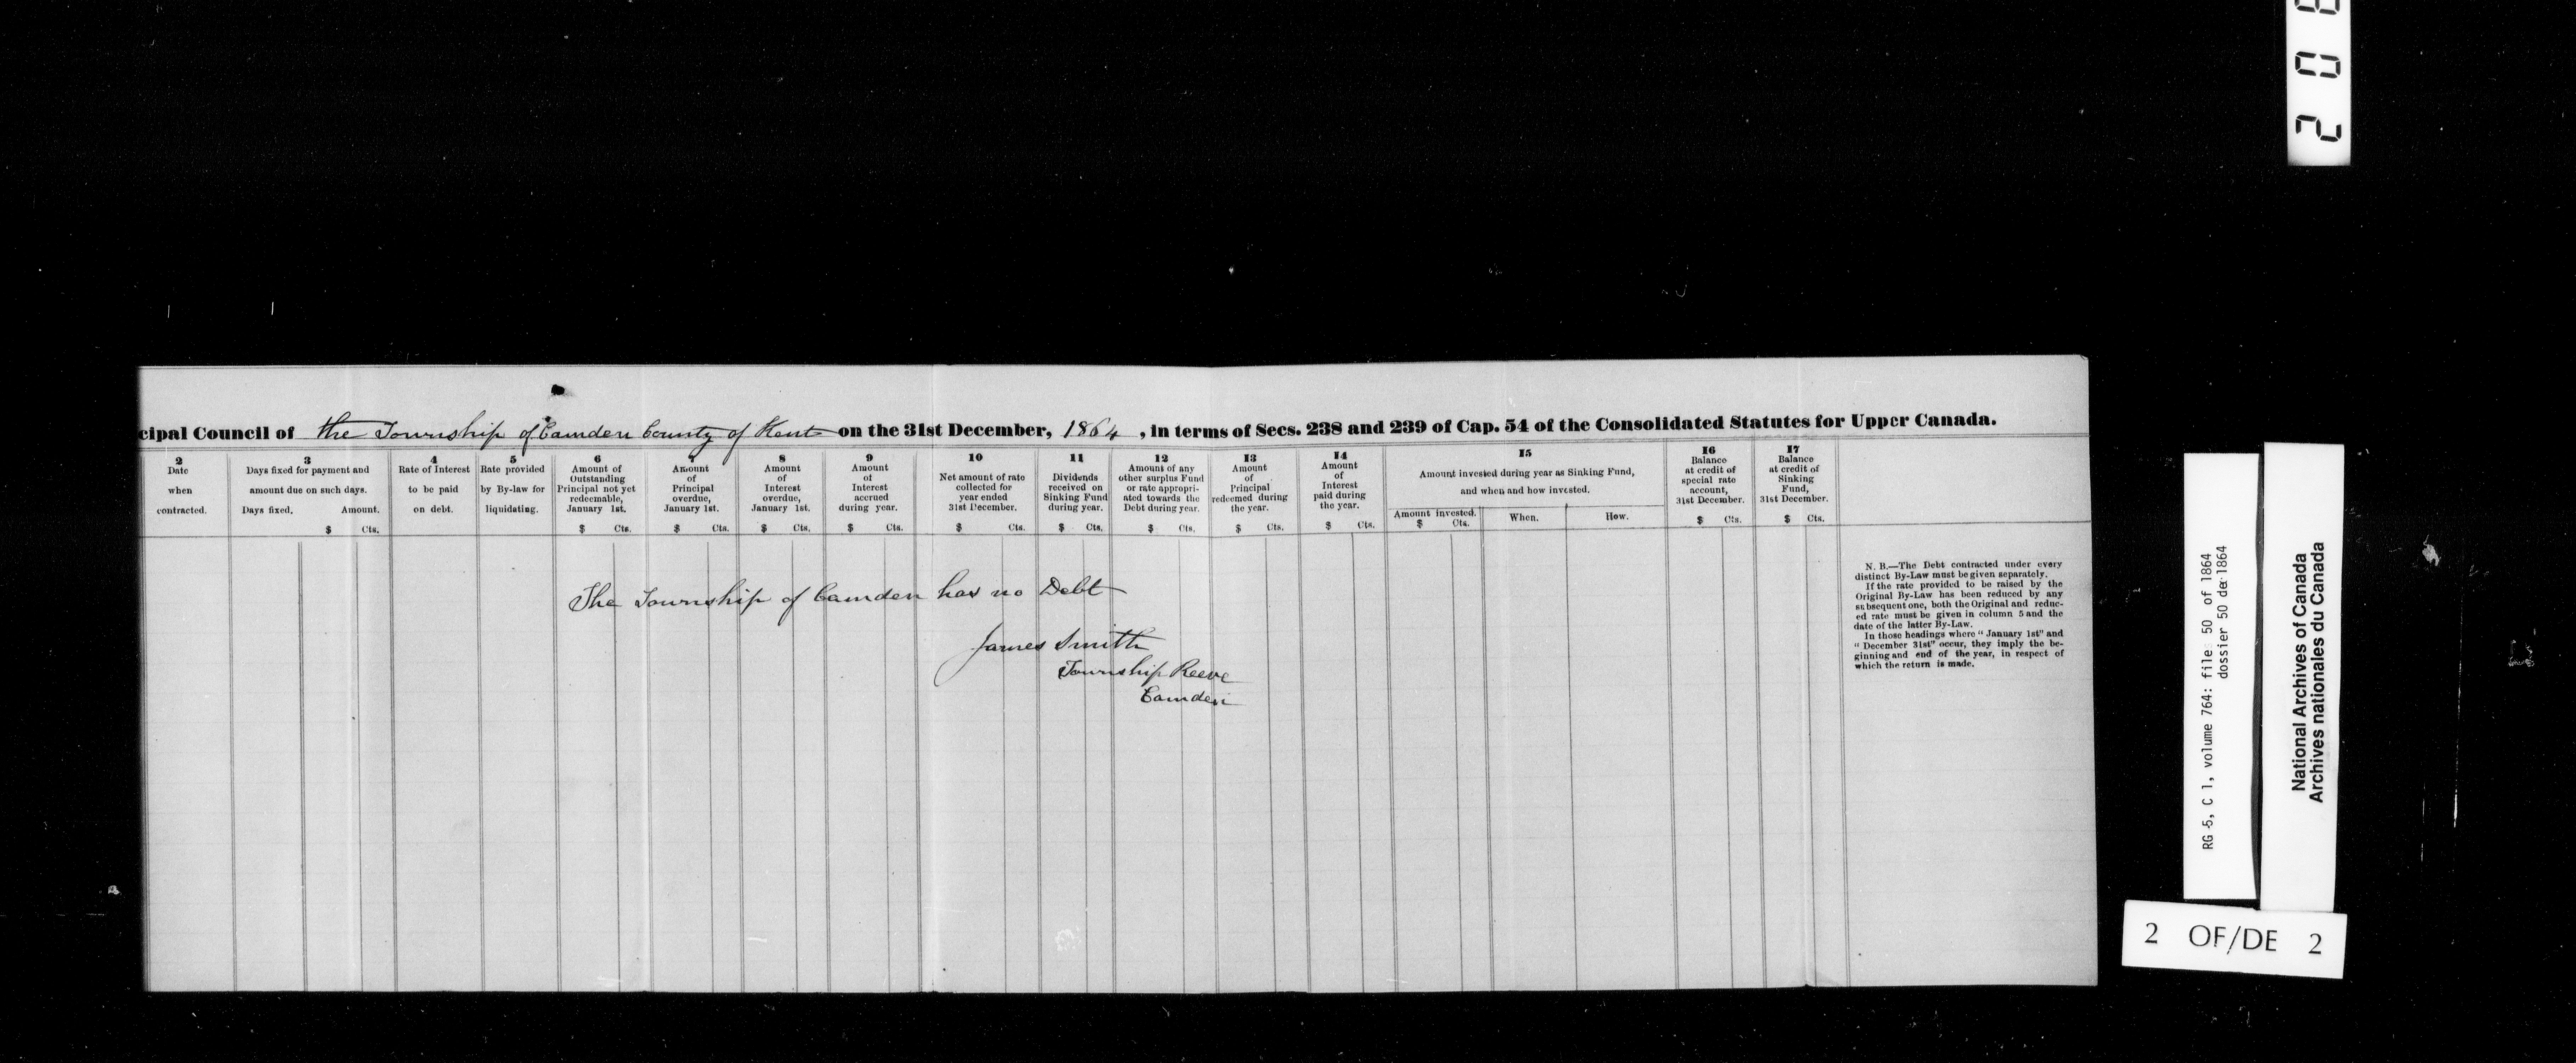 cipal Council of the Township of Camden County of Kent on the 31st December, 1864, in terms of Secs. 238 and 239 of Cap. 54 of the Consolidated Statutes for Upper Canada.
2
Date
when
contracted.
3
Days fixed for payment and
amount due on such days.
Days fixed. Amount.
$ Cts.
4
Rate of Interest
to be paid
on debt.
5
Rate provided
by By-law for
liquidating.
6
Amount of
Outstanding
Principal not yet
redeemable,
January 1st.
$ Cts.
7
Amount
of
Principal
overdue,
January 1st.
$ Cts.
8
Amount
of
Interest
overdue,
January 1st.
$ Cts.
9
Amount
of
Interest
accrued
during year.
$ Cts.
10
Net amount of rate
collected for
year ended
31st December.
$ Cts.
11
Dividends
received on
Sinking Fund
during year.
$ Cts.
12
Amount of any
other surplus Fund
or rate appropri-
ated towards the
Debt during year.
$ Cts.
13
Amount
of
Principal
redeemed during
the year.
$ Cts.
14
Amount
of
Interest
paid during
the year.
$ Cts.
15
Amount invested during year as Sinking Fund,
and when and how invested.
Amount invested. When. How.
$ Cts.
16
Balance
at credit of
special rate
account,
31st December.
$ Cts.
17
Balance
at credit of
Sinking
Fund,
31st December.
$ Cts.
The Township of Camden has no Debt
James Smith
Township Reeve
Camden
N. B.—The Debt contracted under every
distinct By-Law must be given separately.
If the rate provided to be raised by the
Original By-Law has been reduced by any
subsequent one, both the Original and reduc-
ed rate must be given in column 5 and the
date of the latter By-Law.
In those headings where "January 1st" and
"December 31st" occur, they imply the be-
ginning and end of the year, in respect of
which the return is made.
RG 5, C 1, volume 764: file 50 of 1864
dossier 50 de 1864
National Archives of Canada
Archives nationales du Canada
2 OF/DE 2